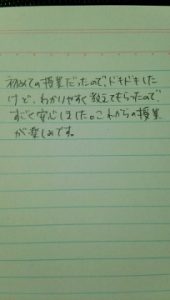 初めての授業だったので、ドキドキした
けど、わかりやすく教えてもらったので、
すごく安心しました。これからの授業
が楽しみです。